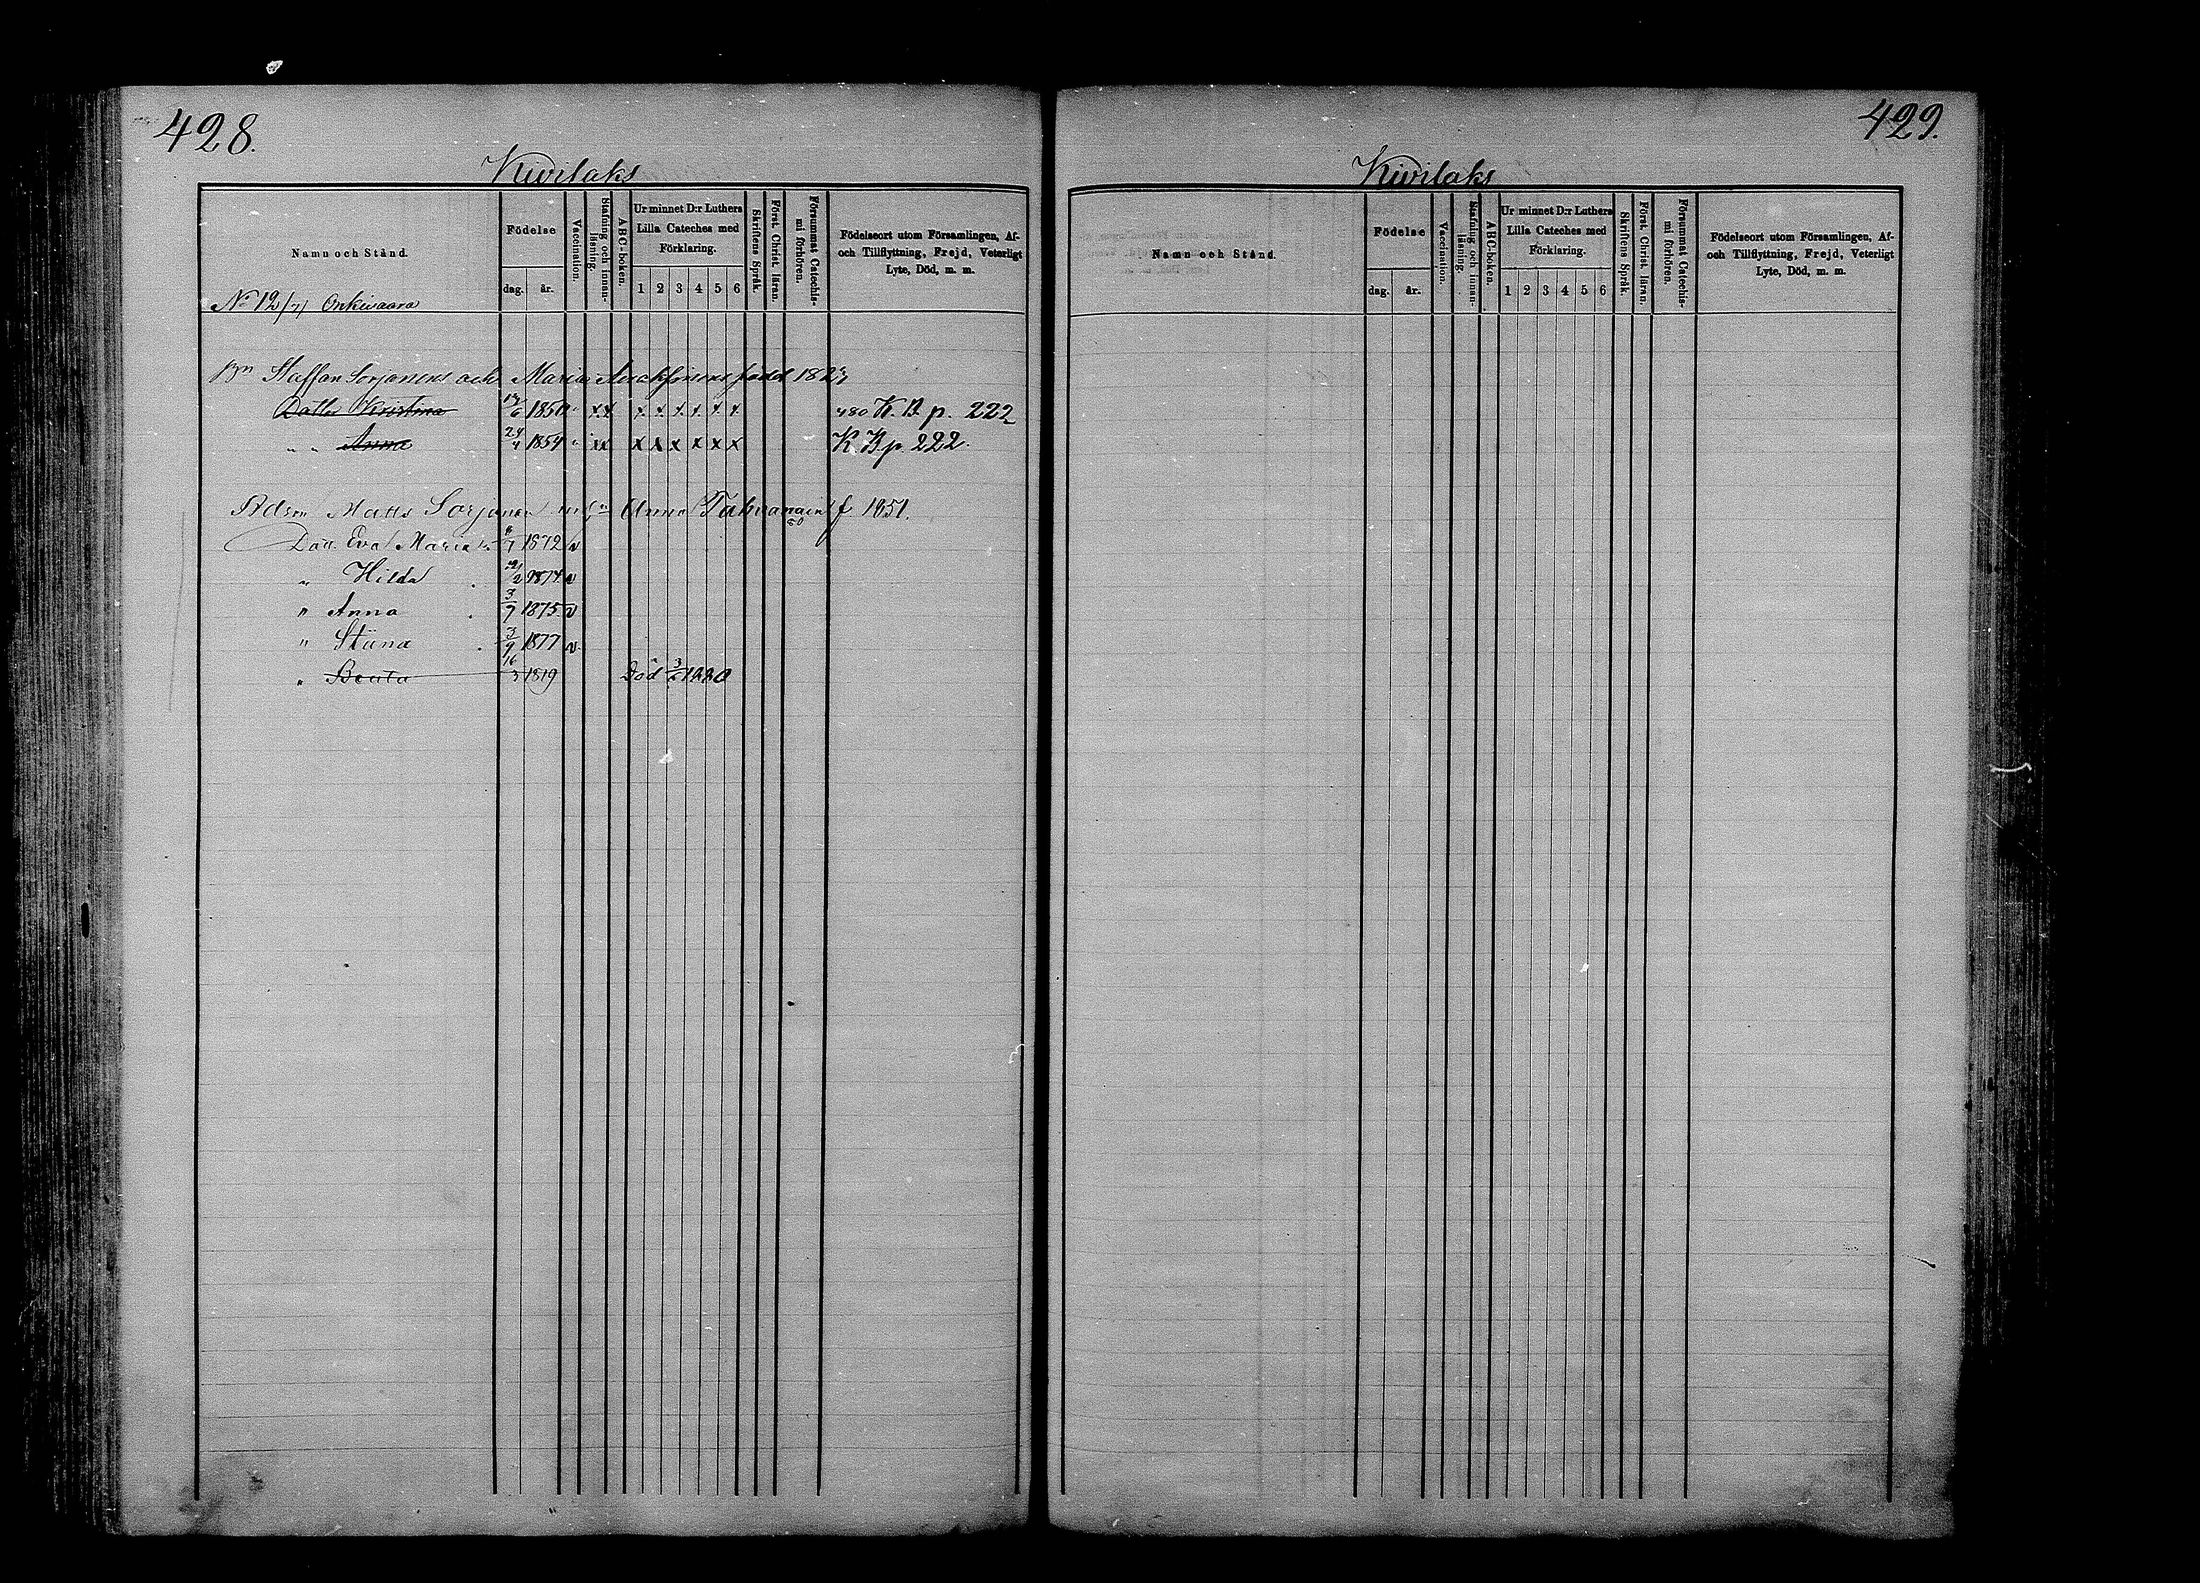 428.
Kivilaks
Namn och Stånd.
Födelse
dag. år.
Vaccination.
Stafning och innanläsning.
ABC-boken.
Ur minnet D:r Luthers Lilla Cateches med Förklaring.
1 2 3 4 5 6
Skriftens Språk.
Först. Christ. läran.
Försummat Catechismi förhören.
Födelseort utom Församlingen, Af- och Tillflyttning, Frejd, Veterligt Lyte, Död, m. m.
No 12 Onkivaara
Staffan Sorjonens och Maria född
Dotter Kristina 6 1850 x x x x x x x x K. B. p. 222
" " Anna 24/4 1854 x x x x x x x x K B p. 222.
Matts Sorjonen Anna f 1851.
Dott. Eva Maria 1872 v
" Hilda 1874 v
" Anna 3/7 1875 v
" Stiina 3/9 1877 v
" Beata 16/3 Död
429.
Kivilaks
Namn och Stånd.
Födelse
dag. år.
Vaccination.
Stafning och innanläsning.
ABC-boken.
Ur minnet D:r Luthers Lilla Cateches med Förklaring.
1 2 3 4 5 6
Skriftens Språk.
Först. Christ. läran.
Försummat Catechismi förhören.
Födelseort utom Församlingen, Af- och Tillflyttning, Frejd, Veterligt Lyte, Död, m. m.